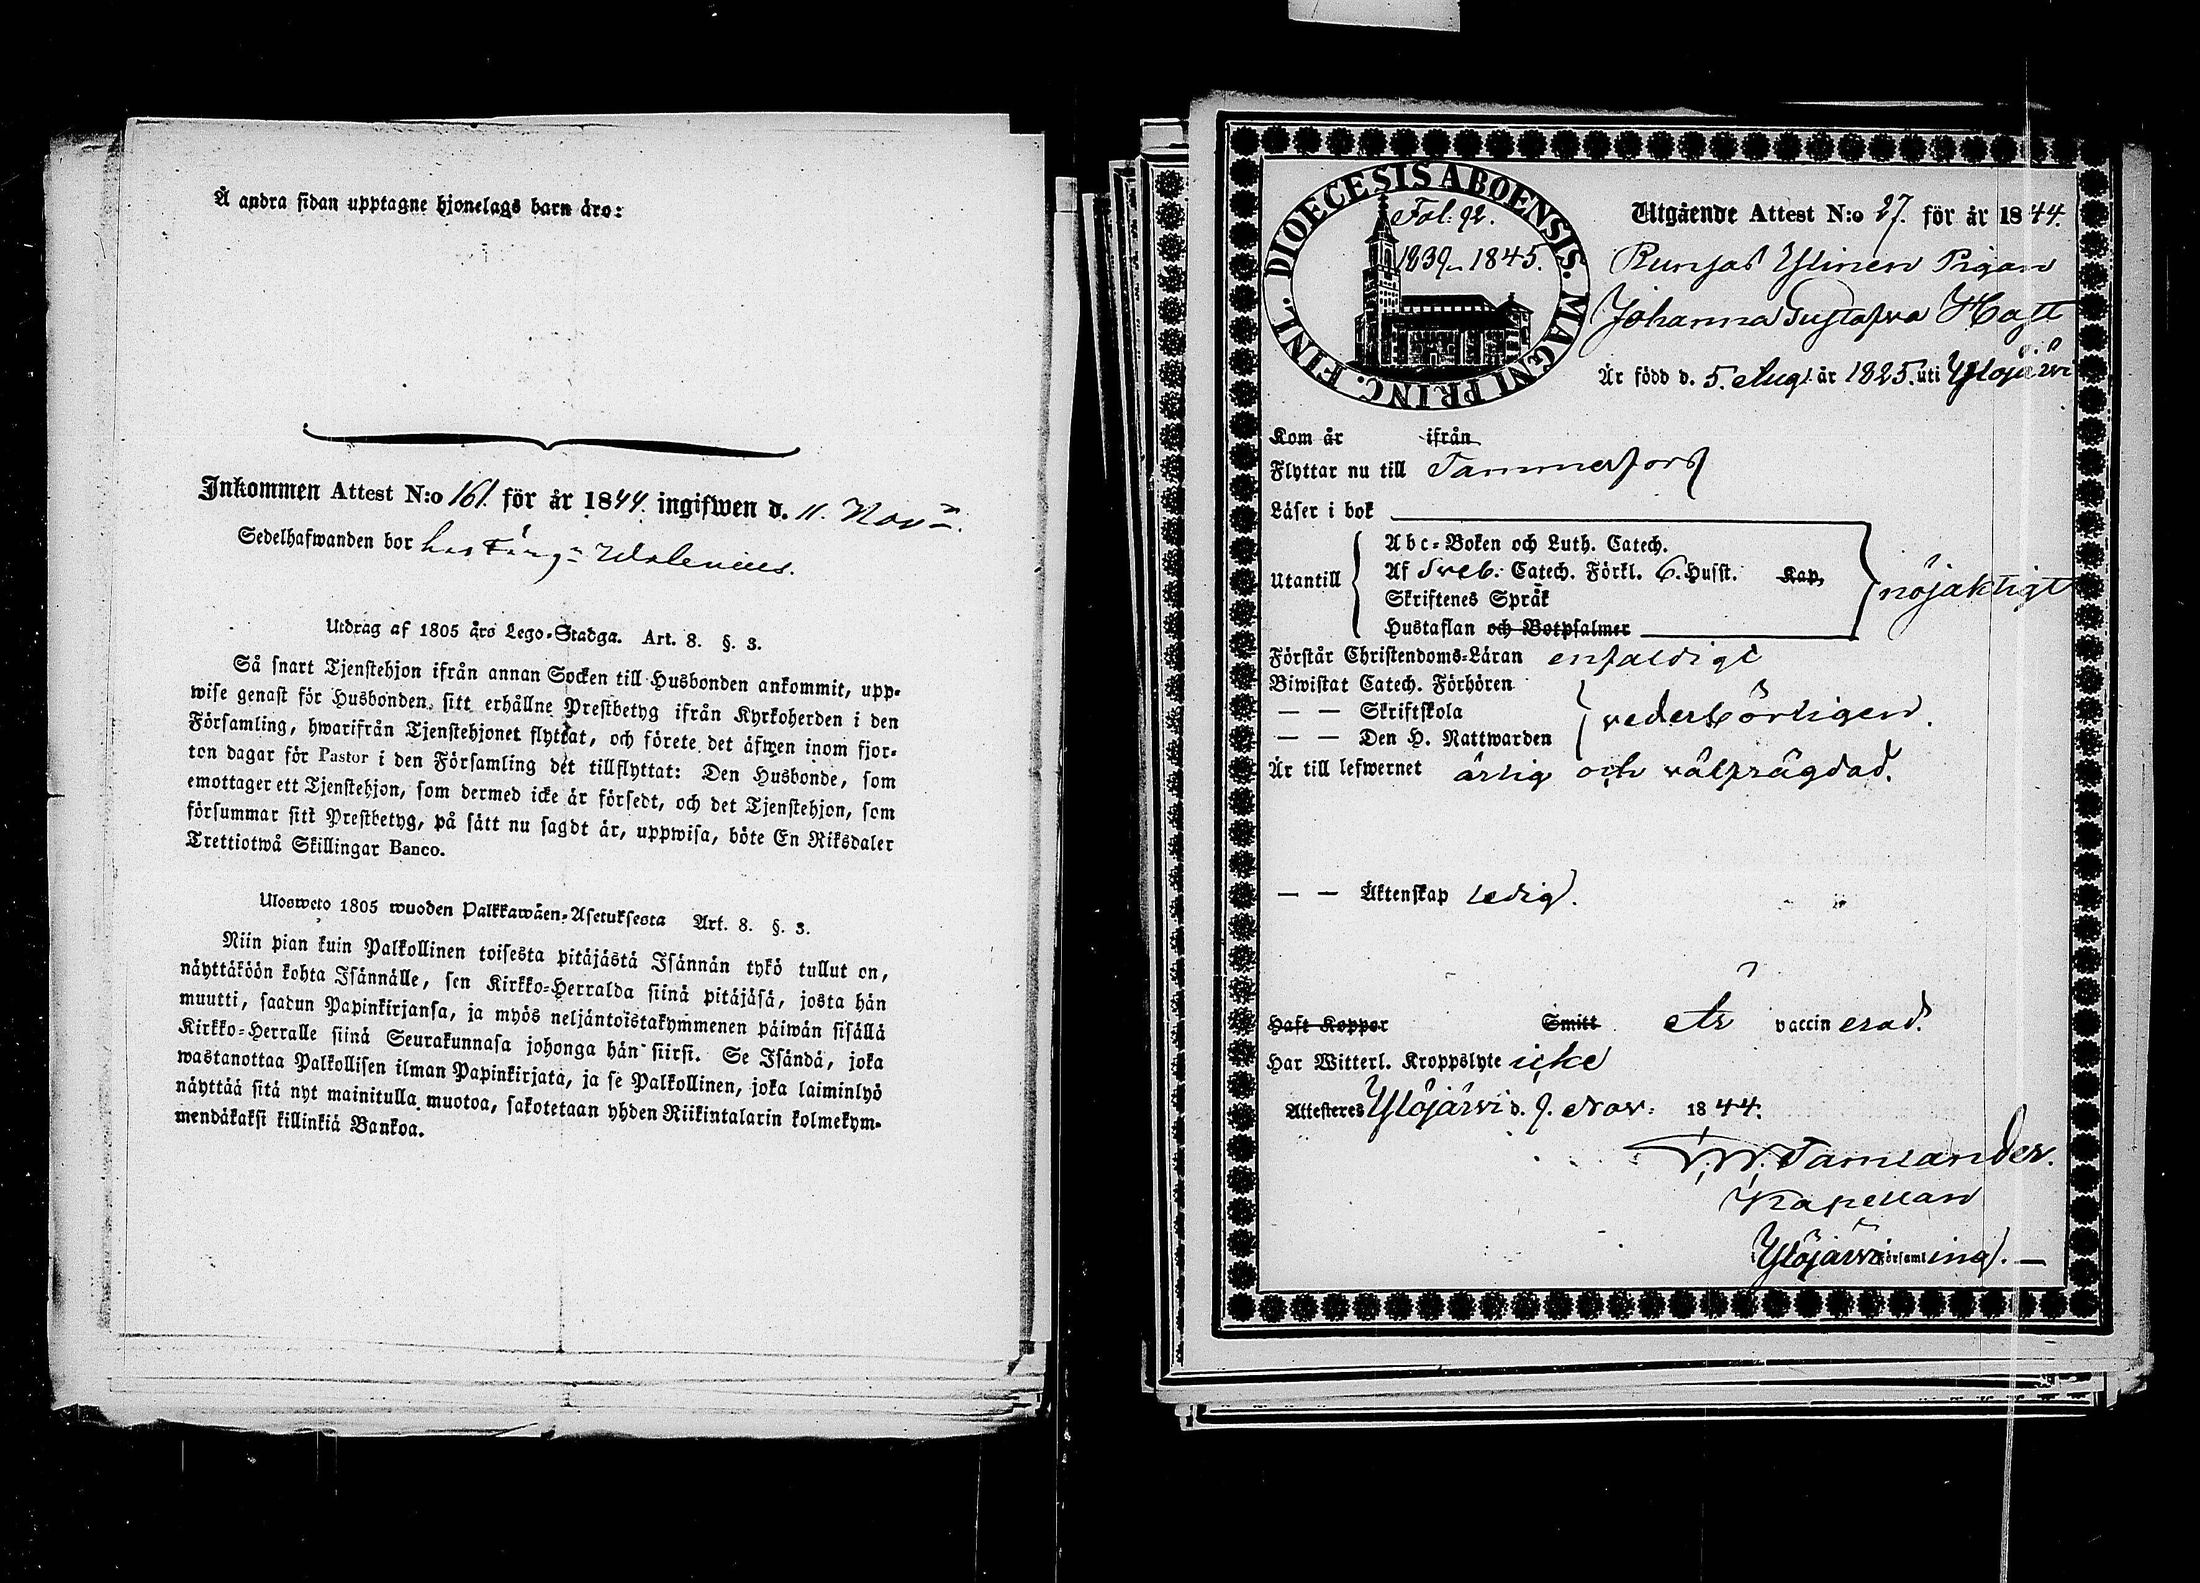 Å andra sidan upptagne hjonelags barn äro:
Inkommen Attest N:o 161. för år 1844. ingifwen d. 11. Nov.
Sedelhafwanden bor hos Färg. Walenius.
Utdrag af 1805 års Lego-Stadga. Art. 8. §. 3.
Så snart Tjenstehjon ifrån annan Socken till Husbonden ankommit, upp-
wise genast för Husbonden, sitt erhållne Prestbetyg ifrån Kyrkoherden i den
Församling, hwarifrån Tjenstehjonet flyttat, och förete det äfwen inom fjor-
ton dagar för Pastor i den Församling det tillflyttat: Den Husbonde, som
emottager ett Tjenstehjon, som dermed icke är försedt, och det Tjenstehjon, som
försummar sitt Prestbetyg, på sätt nu sagdt är, uppwisa, böte En Riksdaler
Trettiotwå Skillingar Banco.
Ulosweto 1805 wuoden Palkkawäen-Asetuksesta Art. 8. §. 3.
Niin pian kuin Palkollinen toisesta pitäjästä Isännän tykö tullut on,
näyttäköön kohta Isännälle, sen Kirkko-Herralda siinä pitäjäsä, josta hän
muutti, saadun Papinkirjansa, ja myös neljäntoistakymmenen päiwän sisällä
Kirkko-Herralle siinä Seurakunnasa johonga hän siirsi. Se Isändä, joka
wastanottaa Palkollisen ilman Papinkirjata, ja se Palkollinen, joka laiminlyö
näyttää sitä nyt mainitulla muotoa, sakotetaan yhden Riikintalarin kolmekym-
mendäkaksi killinkiä Bankoa.
DIOECESIS ABOENSIS. MAGNI PRINC. FINL.
Fol. 92.
1839-1845.
Utgående Attest N:o 27. för år 1844.
Runsas Ylinen Pigan
Johanna Gustafva Hatt
Är född d. 5. Aug. år 1825. uti Ylöjärvi
Kom år ifrån
Flyttar nu till Tammerfors
Läser i bok
Abc-Boken och Luth. Catech.
Utantill Af Sveb. Catech. Förkl. 6. Husst. Kap. nöjaktigt
Skriftenes Språk
Hustaflan och Botpsalmer
Förstår Christendoms-Läran enfaldigt
Biwistat Catech. Förhören
— — Skriftskola vederbörligen.
— — Den H. Nattwarden
Är till lefwernet ärlig och välfrägdad.
— — Äktenskap ledig.
Haft Koppor Smitt Är vaccinerad.
Har Witterl. Kroppslyte icke
Attesteres Ylöjärvi d. 9. Nov. 1844.
Tamlander.
Kapellan
i Ylöjärvi Församling. —